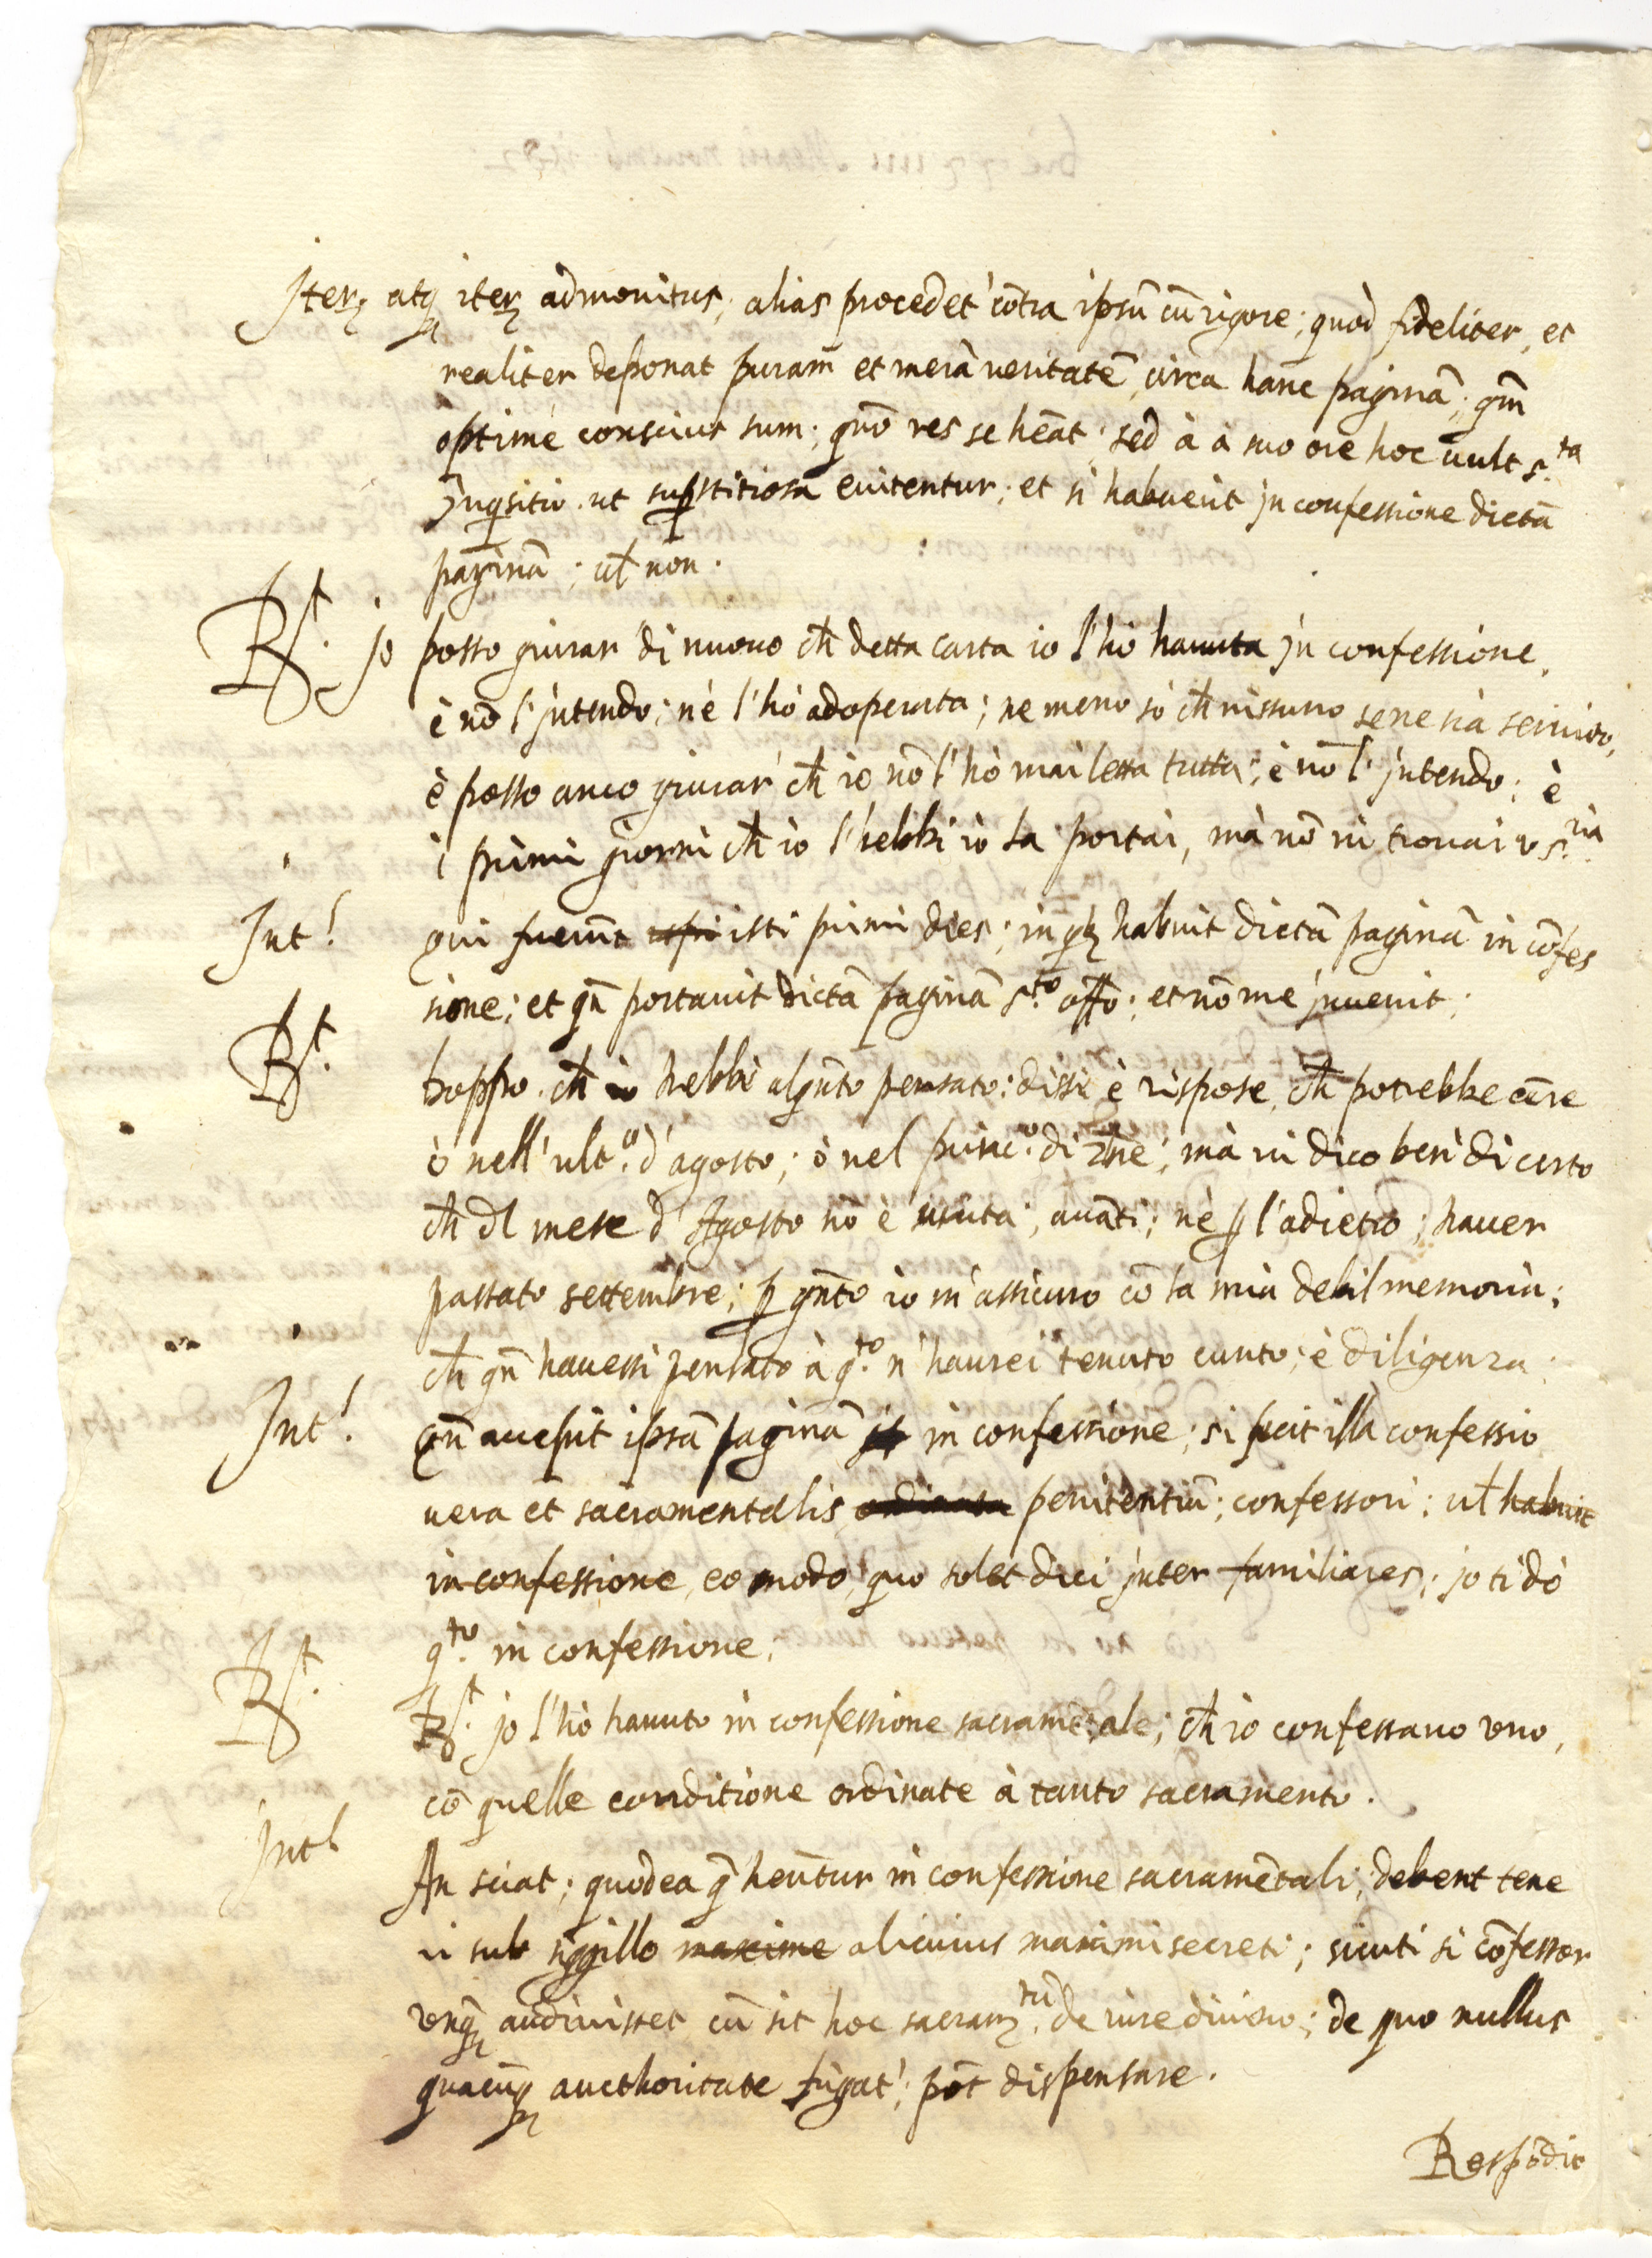 Iterũ atq iterũ admonitus, alias procedet' cõtra ipsũ cũ rigore; quod fideliter, et
realiter deponat puram et merã ueritatẽ, circa hanc paginã; qm̃
optime conscius sum; quõ res se hẽat; sed à à suo ore hoc uult s.ta
Inqsitio. ut supstitiosa euitentur; et si habuerit in confessione dictã
paginã; ul̃ non.
Rt. Io posso giurar di nuouo ch̃ detta carta io l'hò hauuta in confessione,
è nõ l'intendo; nè l'hò adoperata; ne meno sò ch̃ nissuno se ne sia seruito,
è posso anco giurar' ch̃ io nõ l'hò mai letta tutta; è nõ l'intendo; è
i primi giorni ch̃ io l'hebbi io la portai, mà nõ ui trouai v s.ria
Int! qui fuerũt isti primi dies; in qb habuit dictã paginã in cõfes
sione; et qñ portauit dictã paginã s.to offo; et nõ me inuenit;
Rt. doppo. ch̃ io hebbi alqñto pensato; dissi è rispose, ch̃ potrebbe ẽere
ò nell'ult.o d'agosto; ò nel princ.o di 7bre; mà ui dico ben di certo
ch̃ dl mese d'Agosto nõ è uscita; auãti; nè p l'adietro; hauer
passato settembre; p qñto io m'assicuro cõ la mia debil memoria;
ch̃ qñ hauessi pensato à q.to n'haurei tenuto cunto; è diligenza.
Int! Qñ accepit ipsã paginã in confessione; si fuit illa confessio
uera et sacramentalis penitentiũ; confessori; ul̃ habuit
in confessione, eo modo, quo solet dici inter familiares; io ti dò
q.to in confessione.
Rt. Rt. io l'hò hauuto in confessione sacramẽtale; ch̃ io confessauo vno,
cõ quelle conditione ordinate à tanto sacramento.
Int! An sciat; quod ea q̃ heñtur in confessione sacramẽtali; debent tene
ri sub siggillo maxime alicuius maximi secreti; sicuti si cõfessor
vnq̃ audiuisset, cũ sit hoc sacram.tũ de iure diuino; de quo nullus
quacũq aucthoritate fũgat'; põt dispensare.
Respõdit